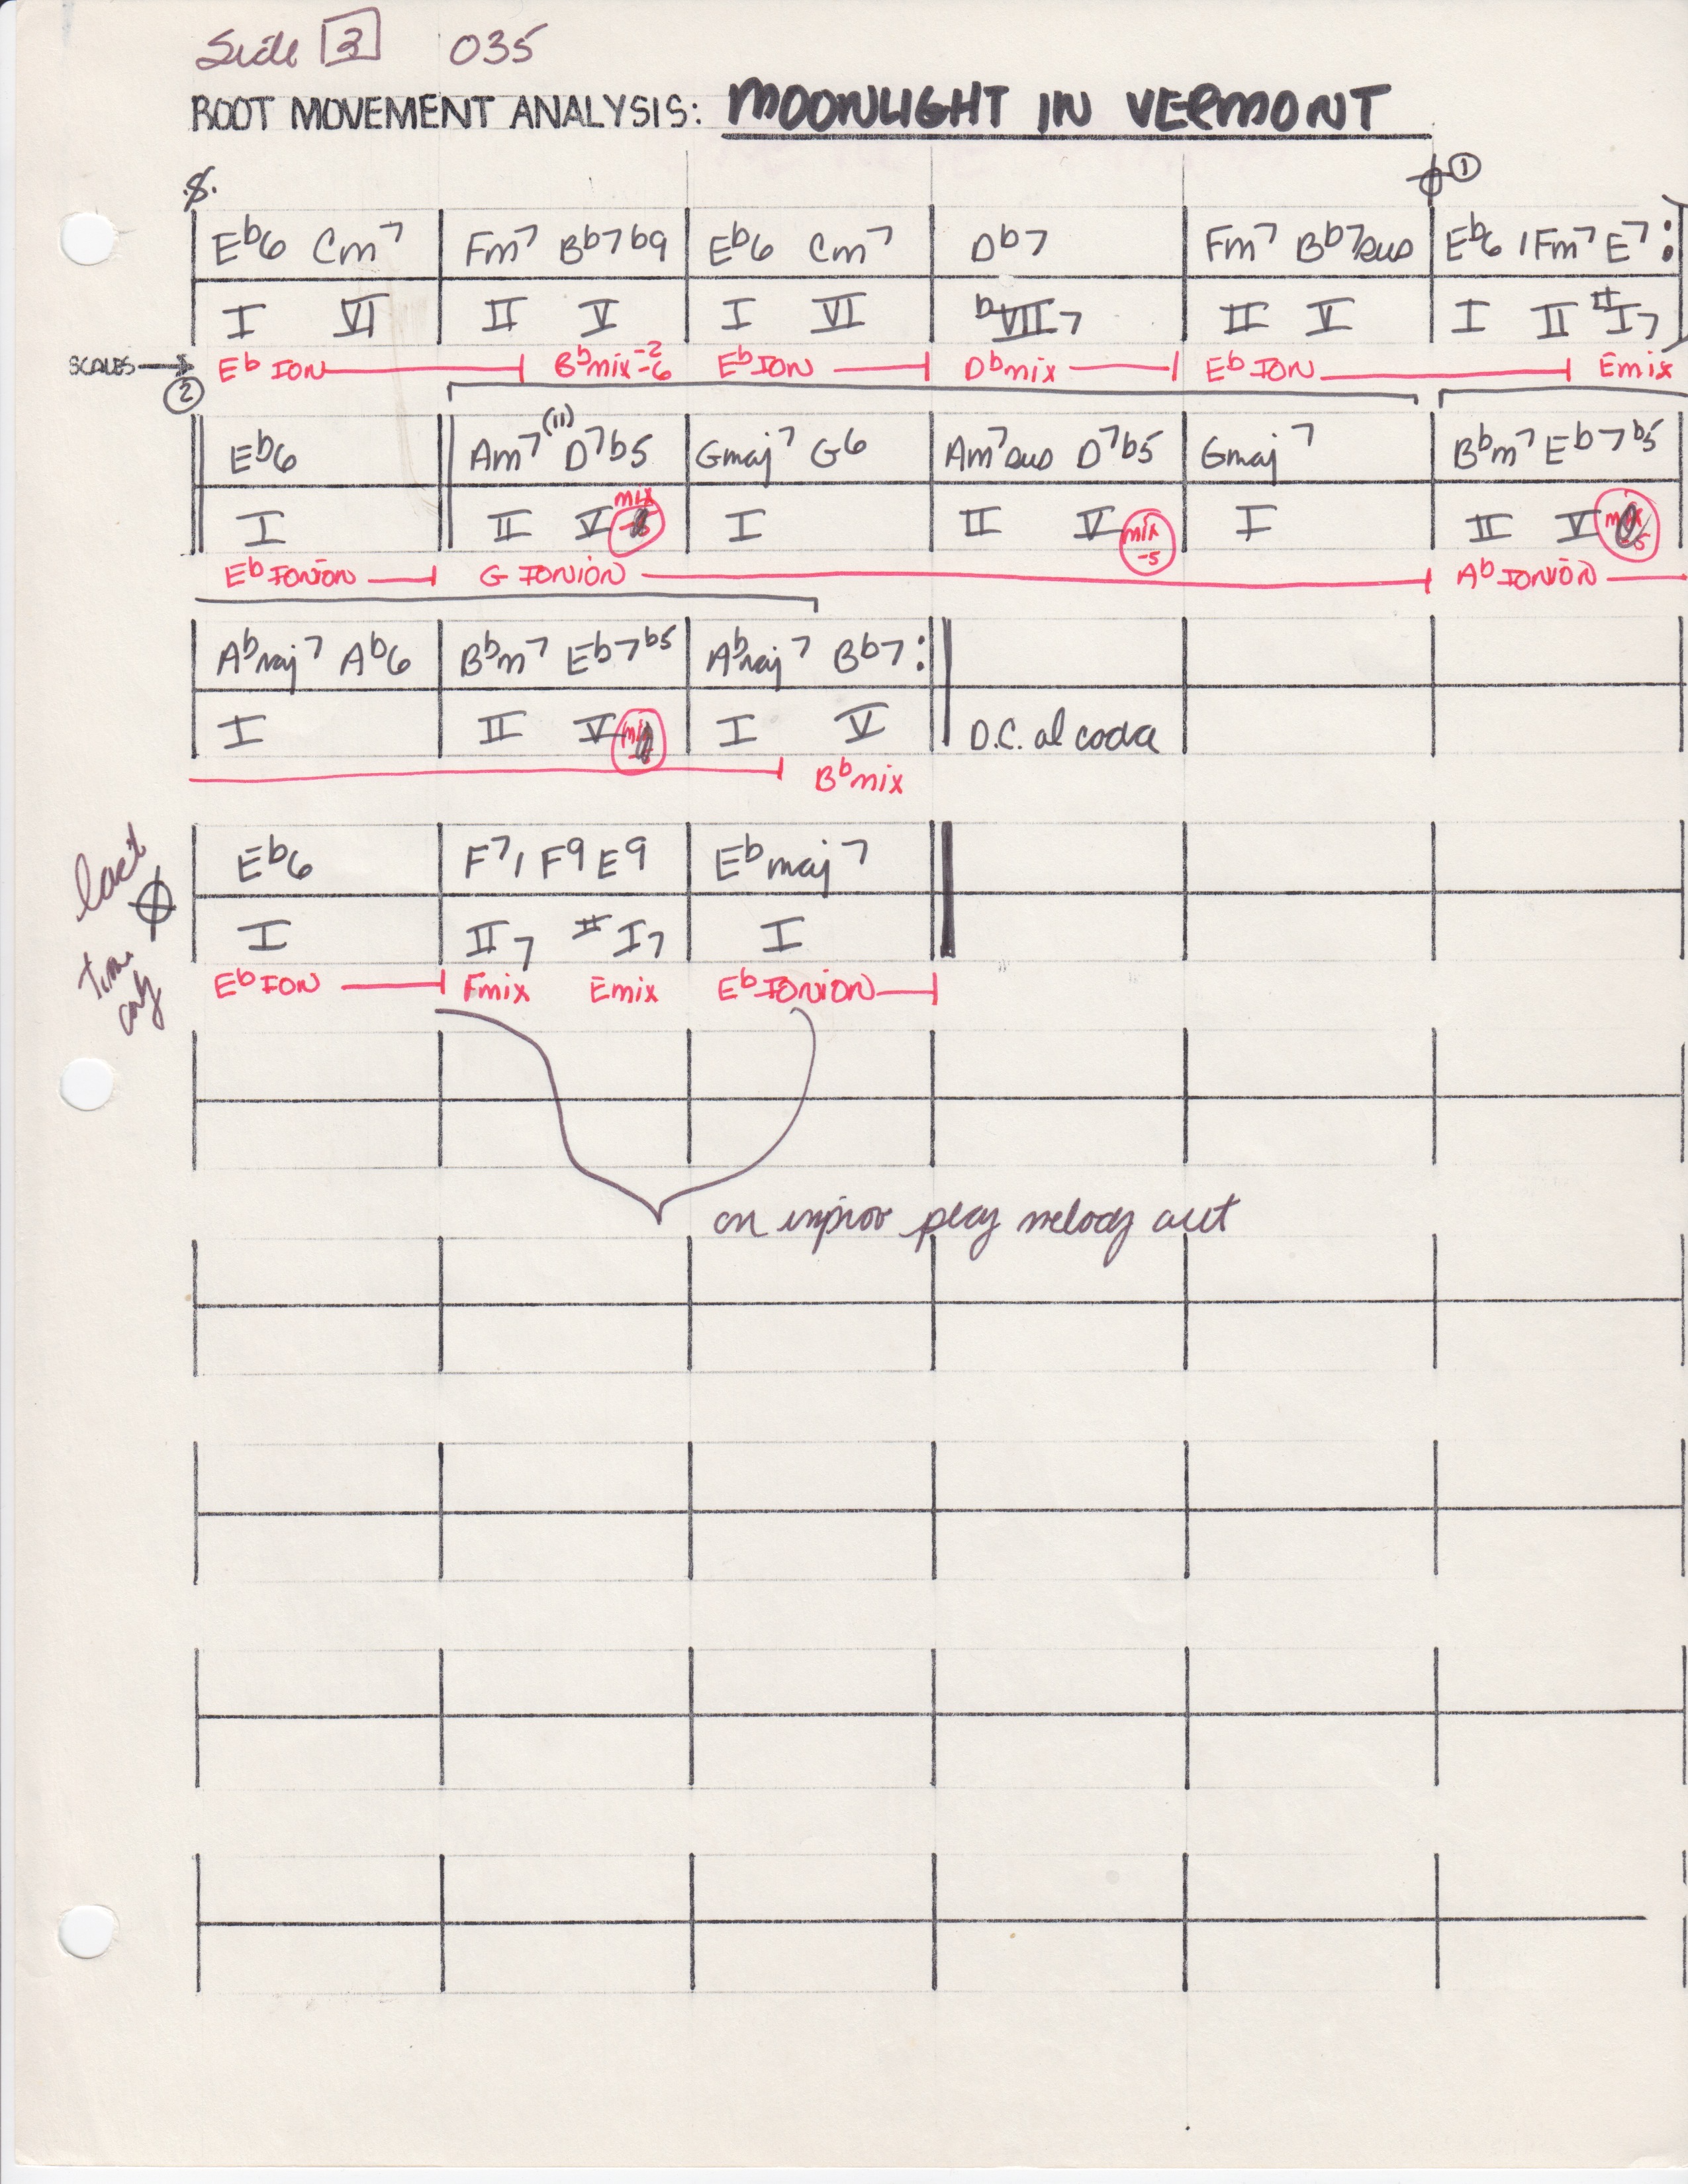 Side 3 035
ROOT MOVEMENT ANALYSIS: MOONLIGHT IN VERMONT
①
E♭6 Cm7 Fm7 B♭7♭9 E♭6 Cm7 D♭7 Fm7 B♭7sus E♭6 / Fm7 E7 :
I VI II V I VI ♭VII7 II V I II #I7
SCALES → E♭ ION B♭mix -2 -6 E♭ ION D♭mix E♭ ION Emix
②
E♭6 Am7(11) D7♭5 Gmaj7 G6 Am7sus D7♭5 Gmaj7 B♭m7 E♭7♭5
I II V mix -5 I II V mix -5 I II V mix -5
E♭ IONION G IONION A♭ IONION
A♭maj7 A♭6 B♭m7 E♭7♭5 A♭maj7 B♭7 :
I II V mix I V D.C. al coda
B♭mix
last
E♭6 F7 / F9 E9 E♭maj7
I II7 #I7 I
time
only
E♭ ION Fmix Emix E♭ IONION
on improv play melody out